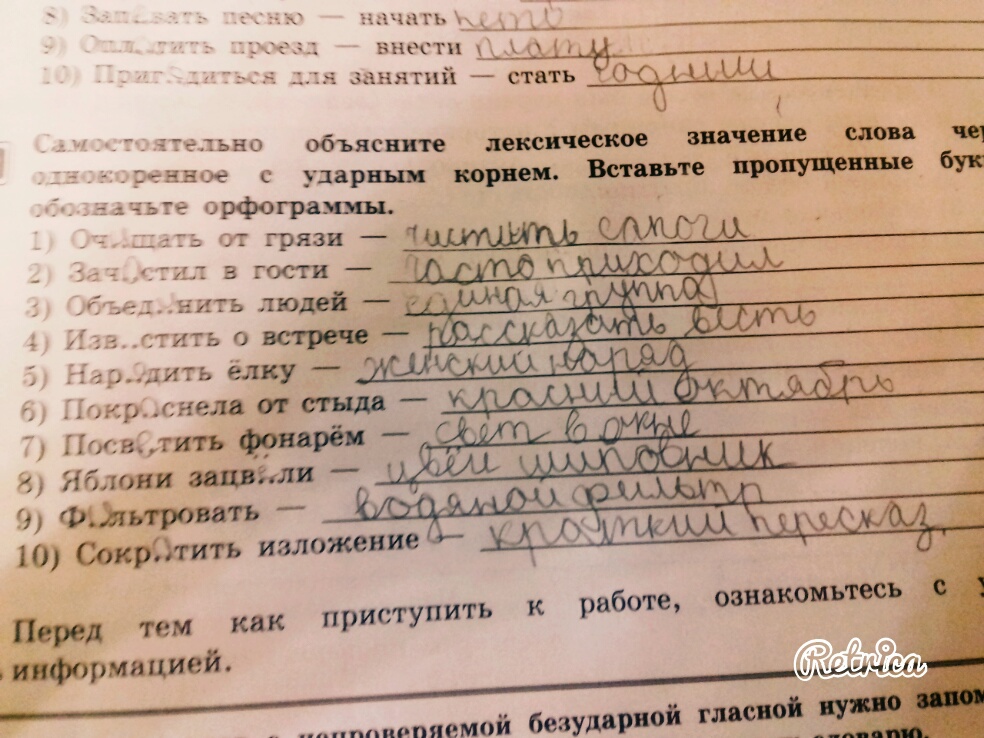 8) Запевать песню — начать петь
9) Оплатить проезд — внести плату
10) Пригодиться для занятий — стать годным
Самостоятельно объясните лексическое значение слова чер
однокоренное с ударным корнем. Вставьте пропущенные бук
обозначьте орфограммы.
1) Очищать от грязи — чистить сапоги
2) Зачастил в гости — часто приходил
3) Объединить людей — единая группа
4) Изв..стить о встрече — рассказать весть
5) Нарядить ёлку — женский наряд
6) Покраснела от стыда — красный октябрь
7) Посветить фонарём — свет в окне
8) Яблони зацвели —
9) Фильтровать — водяной фильтр
10) Сократить изложение — краткий пересказ.
Перед тем как приступить к работе, ознакомьтесь с у
информацией.
Retrica
непроверяемой безударной гласной нужно запом
словарю.